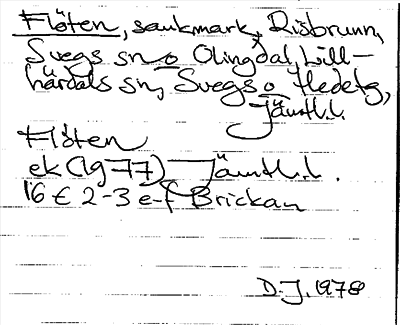 Flöten, sankmark, Risbrunn,
Svegs sn o Olingdal, Lill-
härdals sn, Svegs o Hedetg,
Jämtl.l.
Flöten
ek (19 77) Jämtl.l.
16 E 2-3 e-f Brickan
D.J. 1978